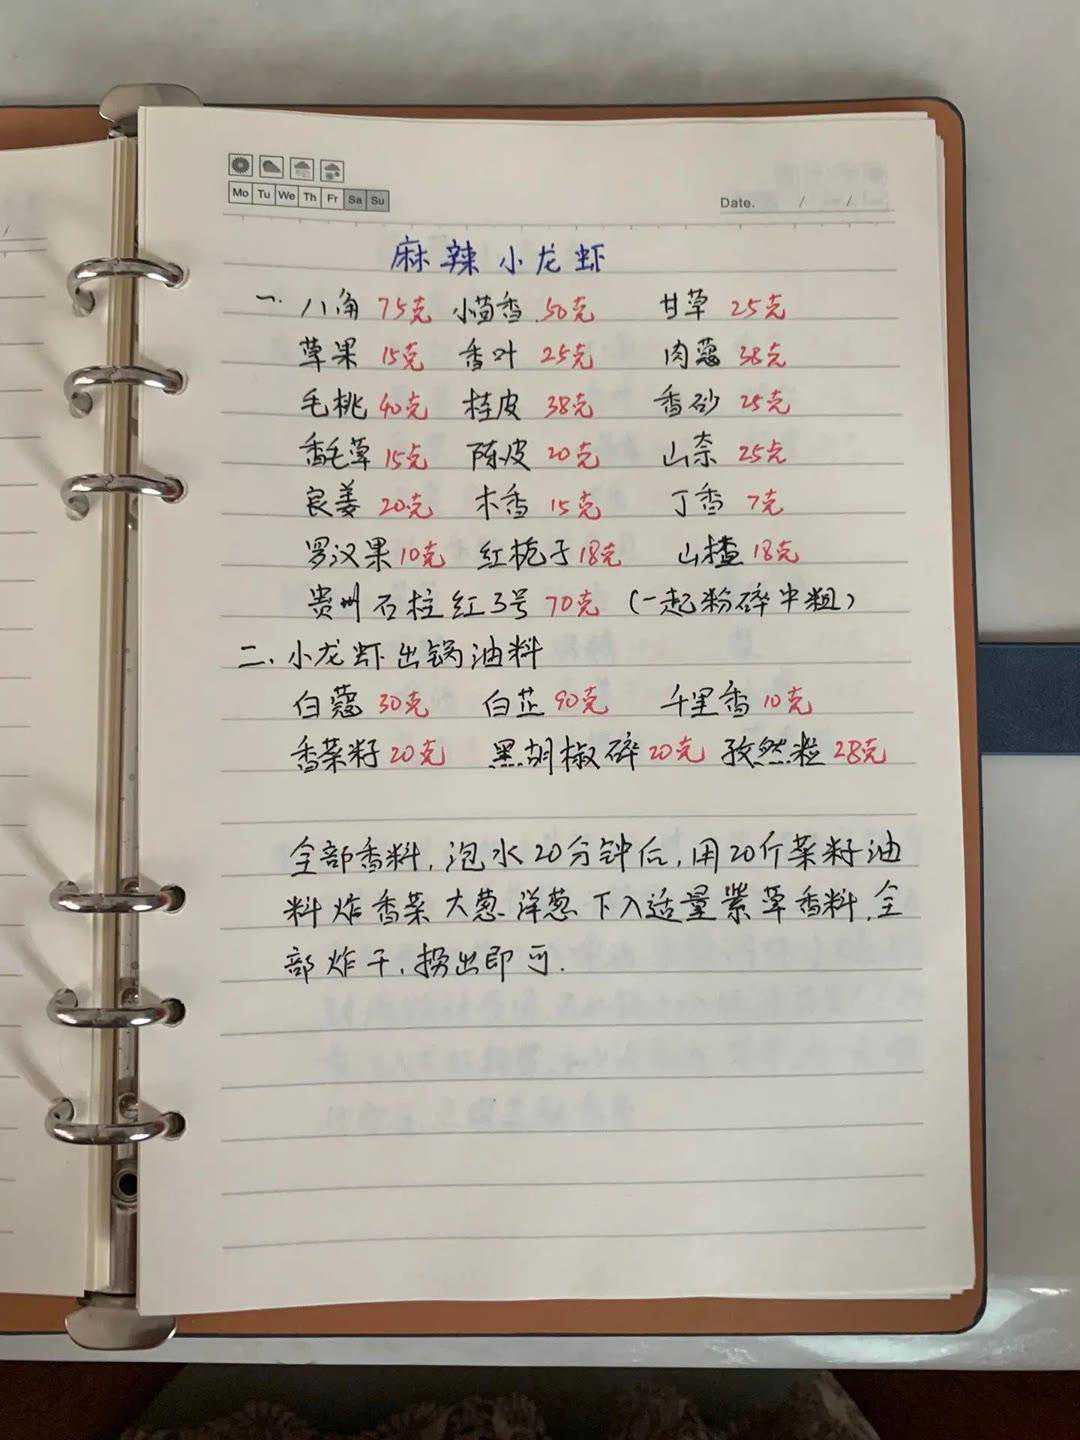 Mo Tu We Th Fr Sa Su
Date. / /
麻辣小龙虾
一. 八角 75克 小茴香 50克 甘草 25克
草果 15克 香叶 25克 肉蔻 38克
毛桃 40克 桂皮 38克 香砂 25克
香毛草 15克 陈皮 20克 山奈 25克
良姜 20克 木香 15克 丁香 7克
罗汉果 10克 红栀子 18克 山楂 18克
贵州石柱红3号 70克 (一起粉碎中粗)
二、小龙虾出锅油料
白蔻 30克 白芷 90克 千里香 10克
香菜籽 20克 黑胡椒碎 20克 孜然粒 28克
全部香料,泡水20分钟后,用20斤菜籽油
料炸香菜大葱、洋葱下入适量紫草香料,全
部炸干,捞出即可.